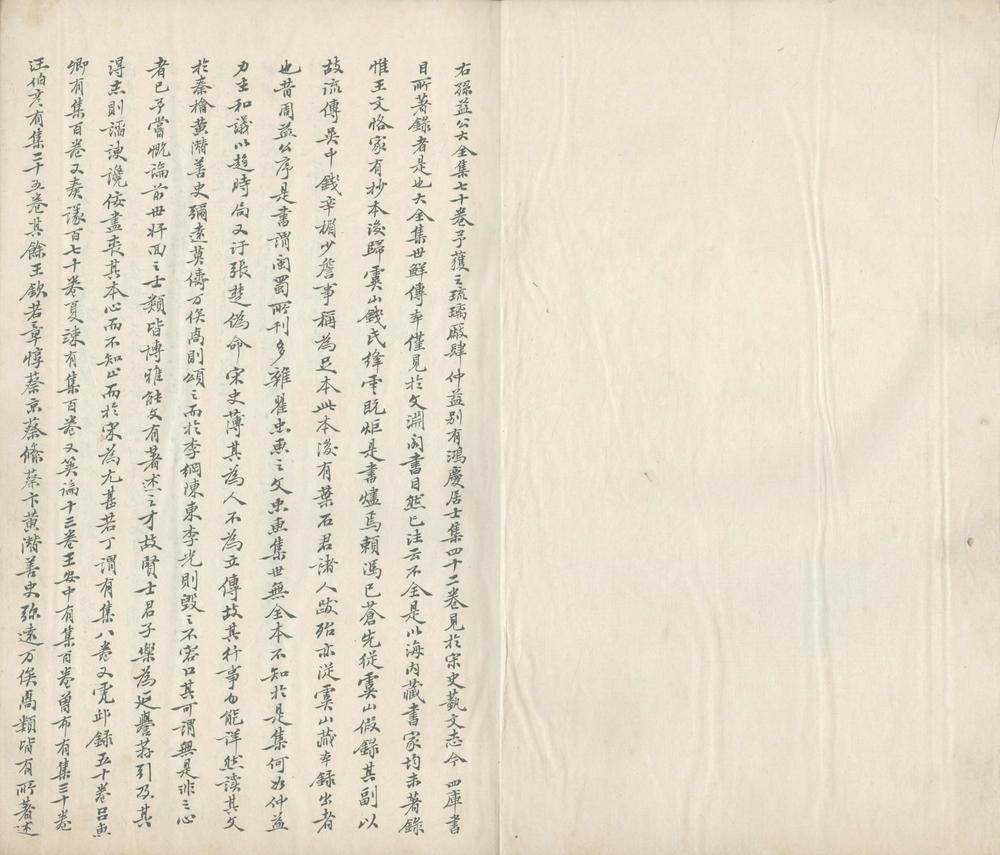 右孫益公大全集七十卷予獲之琉璃厰肆仲益别有鴻慶居士集四十二卷見於宋史藝文志今四庫書
目所著錄者是也大全集世鮮傳本僅見於文淵閣書目然已注云不全是以海内藏書家均未著錄
惟王文恪家有抄本後歸虞山錢氏絳雲既炬是書燼焉賴馮已蒼先從虞山假錄其副以
故流傳吳中錢辛楣少詹事稱為足本此本後有葉石君諸人跋殆亦從虞山藏本錄出者
也昔周益公序是書謂閩蜀所刊多雜瞿忠惠之文忠惠集世無全本不知於是集何如仲益
力主和議以趨時局又汙張楚偽命宋史薄其為人不為立傳故其行事勿能詳然讀其文
於秦檜黄潛善史彌遠莫儔万俟卨則頌之而於李綱陳東李光則毁之不容口其可謂無是非之心
者已予嘗慨論前世奸回之士類皆博雅能文有著述之才故賢士君子樂為延譽荐引及其
得志則謟諛讒佞盡喪其本心而不知止而於宋為尤甚若丁謂有集八卷又虎邱錄五十卷吕惠
卿有集百卷又奏議百七十卷夏竦有集百卷又策論十三卷王安中有集百卷曽布有集三十卷
汪伯彦有集二十五卷其餘王欽若章惇蔡京蔡絛蔡卞黄潛善史弥遠万俟卨類皆有所著述